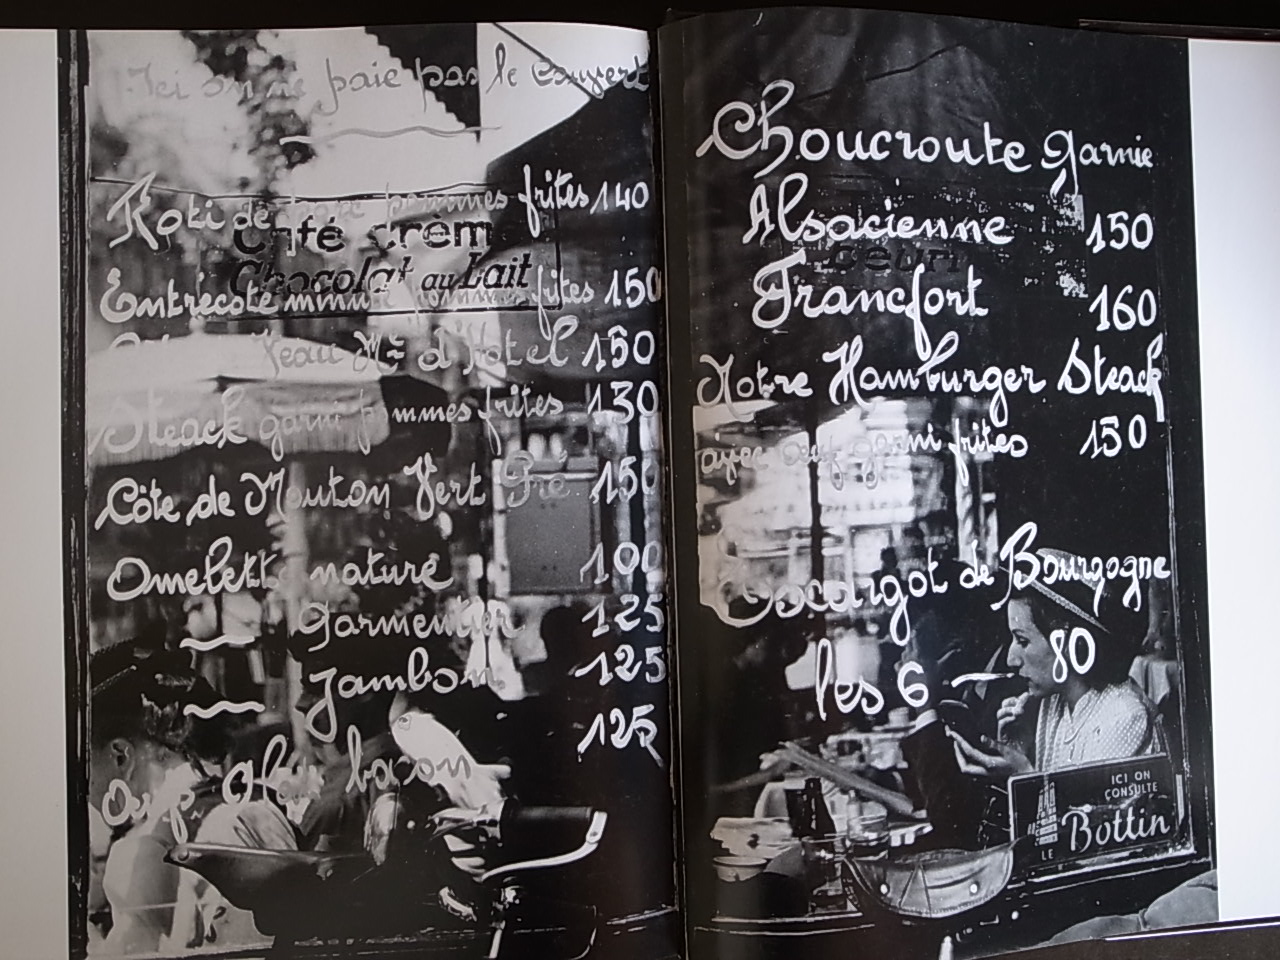 Ici on ne paie pas le couvert
Roti de porc pommes frites 140
Café Crème
Chocolat au Lait
Entrecote minute pommes frites 150
Veau Mtre d'Hotel 150
Steack garni pommes frites 130
Côte de Mouton Vert Pré 150
Omelette nature 100
Parmentier 125
Jambon 125
125
Oeufs Plat bacon
Choucroute garnie
Alsacienne 150
Francfort 160
Notre Hamburger Steack
avec oeuf garni frites 150
Escargot de Bourgogne
les 6 — 80
ICI ON
CONSULTE
LE Bottin